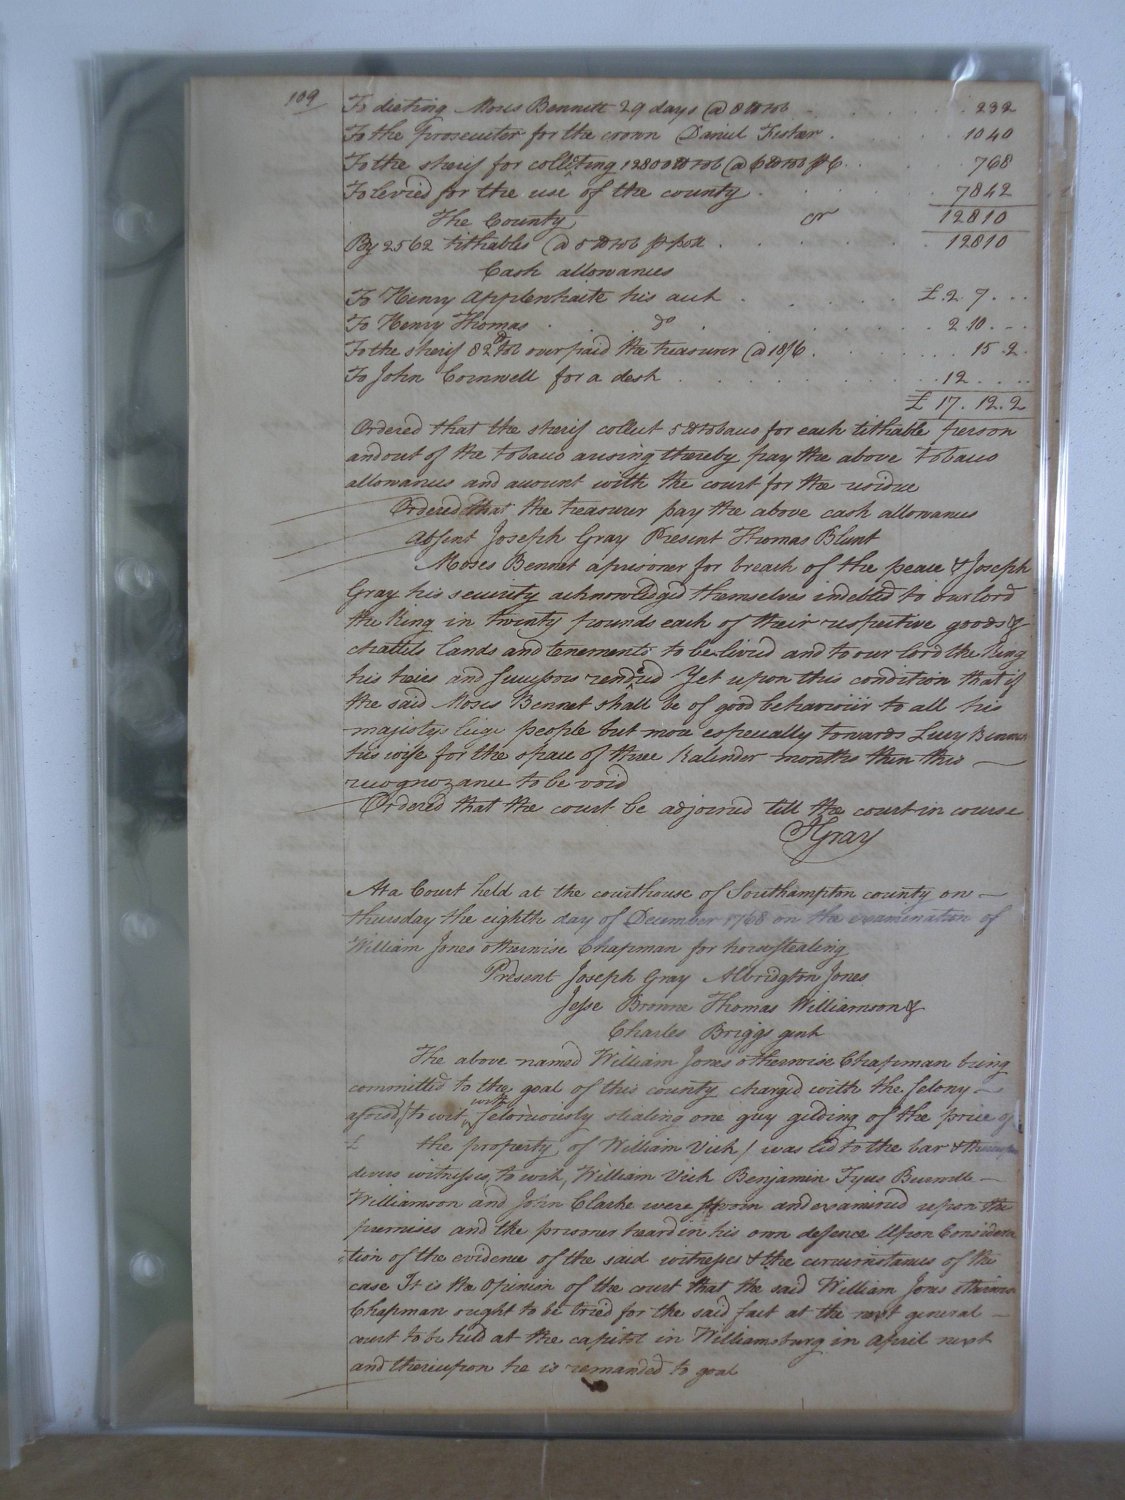 109
To dieting Moses Bennett 29 days @ 8 lb tob . . . . 232
To the prosecuter for the crown Daniel Fisher . . . . 1040
To the sherif for collecting 12800 lb tob @ 6 lb tob p C . . . 768
To levied for the use of the county . . . . 7842
The County Cr 12810
By 2562 tithables @ 5 lb tob p poll . . . . 12810
Cash allowances
To Henry Applewhaite his acct . . . . £ 2. 7 . . .
To Henry Thomas . . do . . . . 2 10 . . .
To the sherif 82 lb tob overpaid the treasurer @ 18/6 . . . . 15. 2.
To John Cornwell for a desk . . . . 12 . . . .
£ 17. 12. 2
Ordered that the sherif collect 5 lb tobacco for each tithable person
and out of the tobacco arising thereby pay the above tobacco
allowances and account with the court for the residue
Ordered that the treasurer pay the above cash allowances
Absent Joseph Gray Present Thomas Blunt
Moses Bennet a prisoner for breach of the peace & Joseph
Gray his security acknowledged themselves indebted to our lord
the King in twenty pounds each of their respective goods &
chattels lands and tenements to be livied and to our lord the King
his heirs and successors rendred Yet upon this condition that if
the said Moses Bennet shall be of good behaviour to all his
majestys liege people but more especially towards Lucy Bennet
his wife for the space of three Kalender months then this
recognozance to be void
Ordered that the court be adjoined till the court in course
JGray
At a Court held at the courthouse of Southampton county on
thursday the eighth day of December 1768 on the examination of
William Jones otherwise Chapman for horsestealing
Present Joseph Gray Albridgton Jones
Jesse Browne Thomas Williamson &
Charles Briggs gent
The above named William Jones otherwise Chapman being
committed to the goal of this county charged with the felony
aforesd (to wit with feloniously stealing one grey gelding of the price of
£ the property of William Vick) was led to the bar & thereupon
divers witnesses, to wit, William Vick Benjamin Tyus Burwell
Williamson and John Clarke were sworn and examined upon the
premises and the prisoner heard in his own defence Upon Considera
tion of the evidence of the said witnesses & the circumstances of the
case It is the Opinion of the court that the said William Jones otherwise
Chapman ought to be tried for the said fact at the next general
court to be held at the capitol in Williamsburg in April next
and thereupon he is remanded to goal